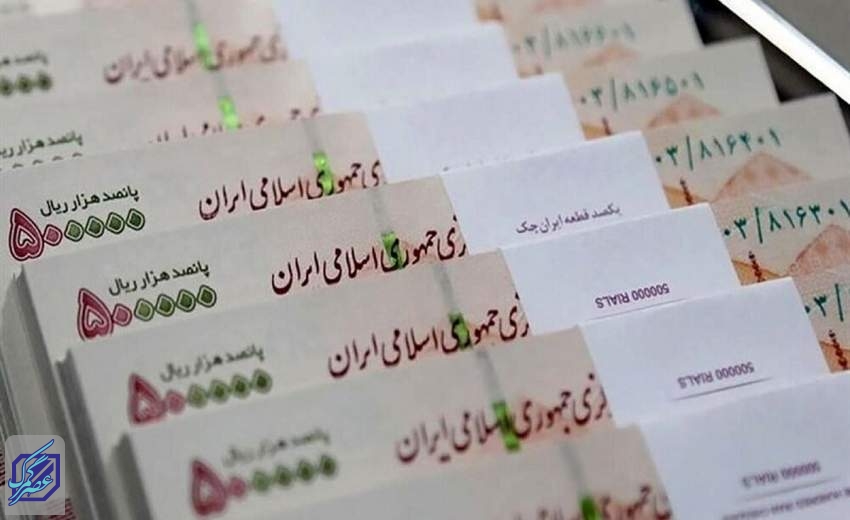 جمهوری اسلامی ایران
۰۳/۸۱۶۶۰۱
پانصد هزار ریال
جمهوری اسلامی ایران
۰۳/۸۱۶۵۰۱
پانصد هزار ریال
۵۰۰۰۰۰
جمهوری اسلامی ایران
۰۳/۸۱۶۴۰۱
یکصد قطعه ایران چک
پانصد هزار ریال
۵۰۰۰۰۰
جمهوری اسلامی ایران
۰۳/۸۱۶۳۰۱
500000 RIALS
پانصد هزار ریال
۵۰۰۰۰۰
جمهوری اسلامی ایران
500000 RIALS
پانصد هزار ریال
۵۰۰۰۰۰
جمهوری اسلامی ایران
جمهوری اسلامی